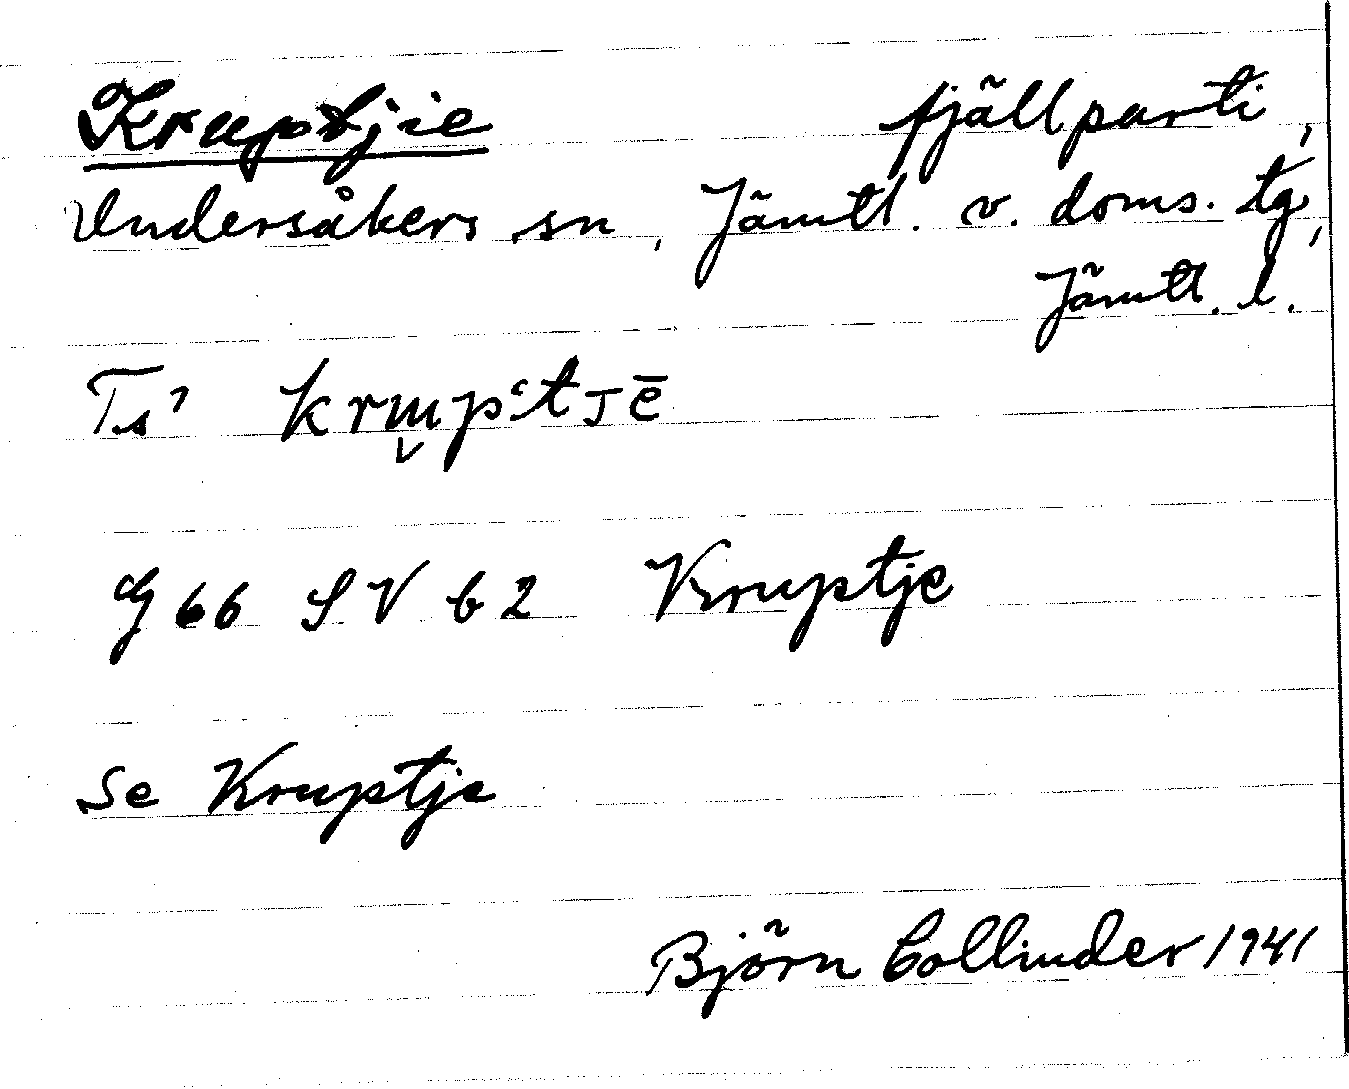 Kruptjie fjällparti,
Undersåkers sn, Jämtl. v. doms. tg,
Jämtl. l.
G 66 SV b 2 Kruptje
Se Kruptje
Björn Collinder 1941